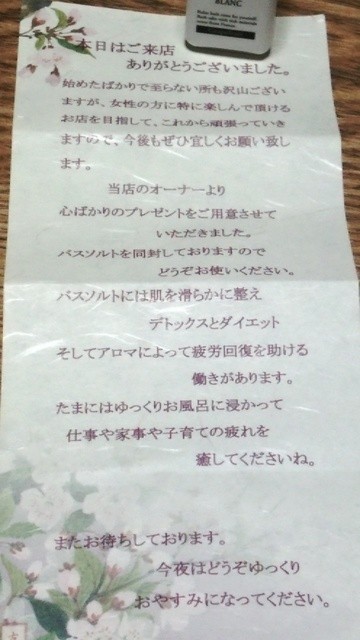 BLANC
本日はご来店
ありがとうございました。
始めたばかりで至らない所も沢山ござい
ますが、女性の方に特に楽しんで頂ける
お店を目指して、これから頑張っていき
ますので、今後もぜひ宜しくお願い致し
ます。
当店のオーナーより
心ばかりのプレゼントをご用意させて
いただきました。
バスソルトを同封しておりますので
どうぞお使いください。
バスソルトには肌を滑らかに整え
デトックスとダイエット
そしてアロマによって疲労回復を助ける
働きがあります。
たまにはゆっくりお風呂に浸かって
仕事や家事や子育ての疲れを
癒してくださいね。
またお待ちしております。
今夜はどうぞゆっくり
おやすみになってください。